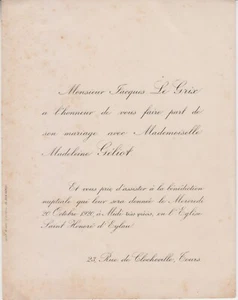 Monsieur Jacques Le Grix
a l'honneur de vous faire part de
son mariage avec Mademoiselle
Madeleine Geliot
Et vous prie d'assister à la bénédiction
nuptiale qui leur sera donnée le Mercredi
20 Octobre 1920, à Midi très précis, en l'Eglise
Saint Honoré d'Eylau
23, Rue de Clocheville, Tours